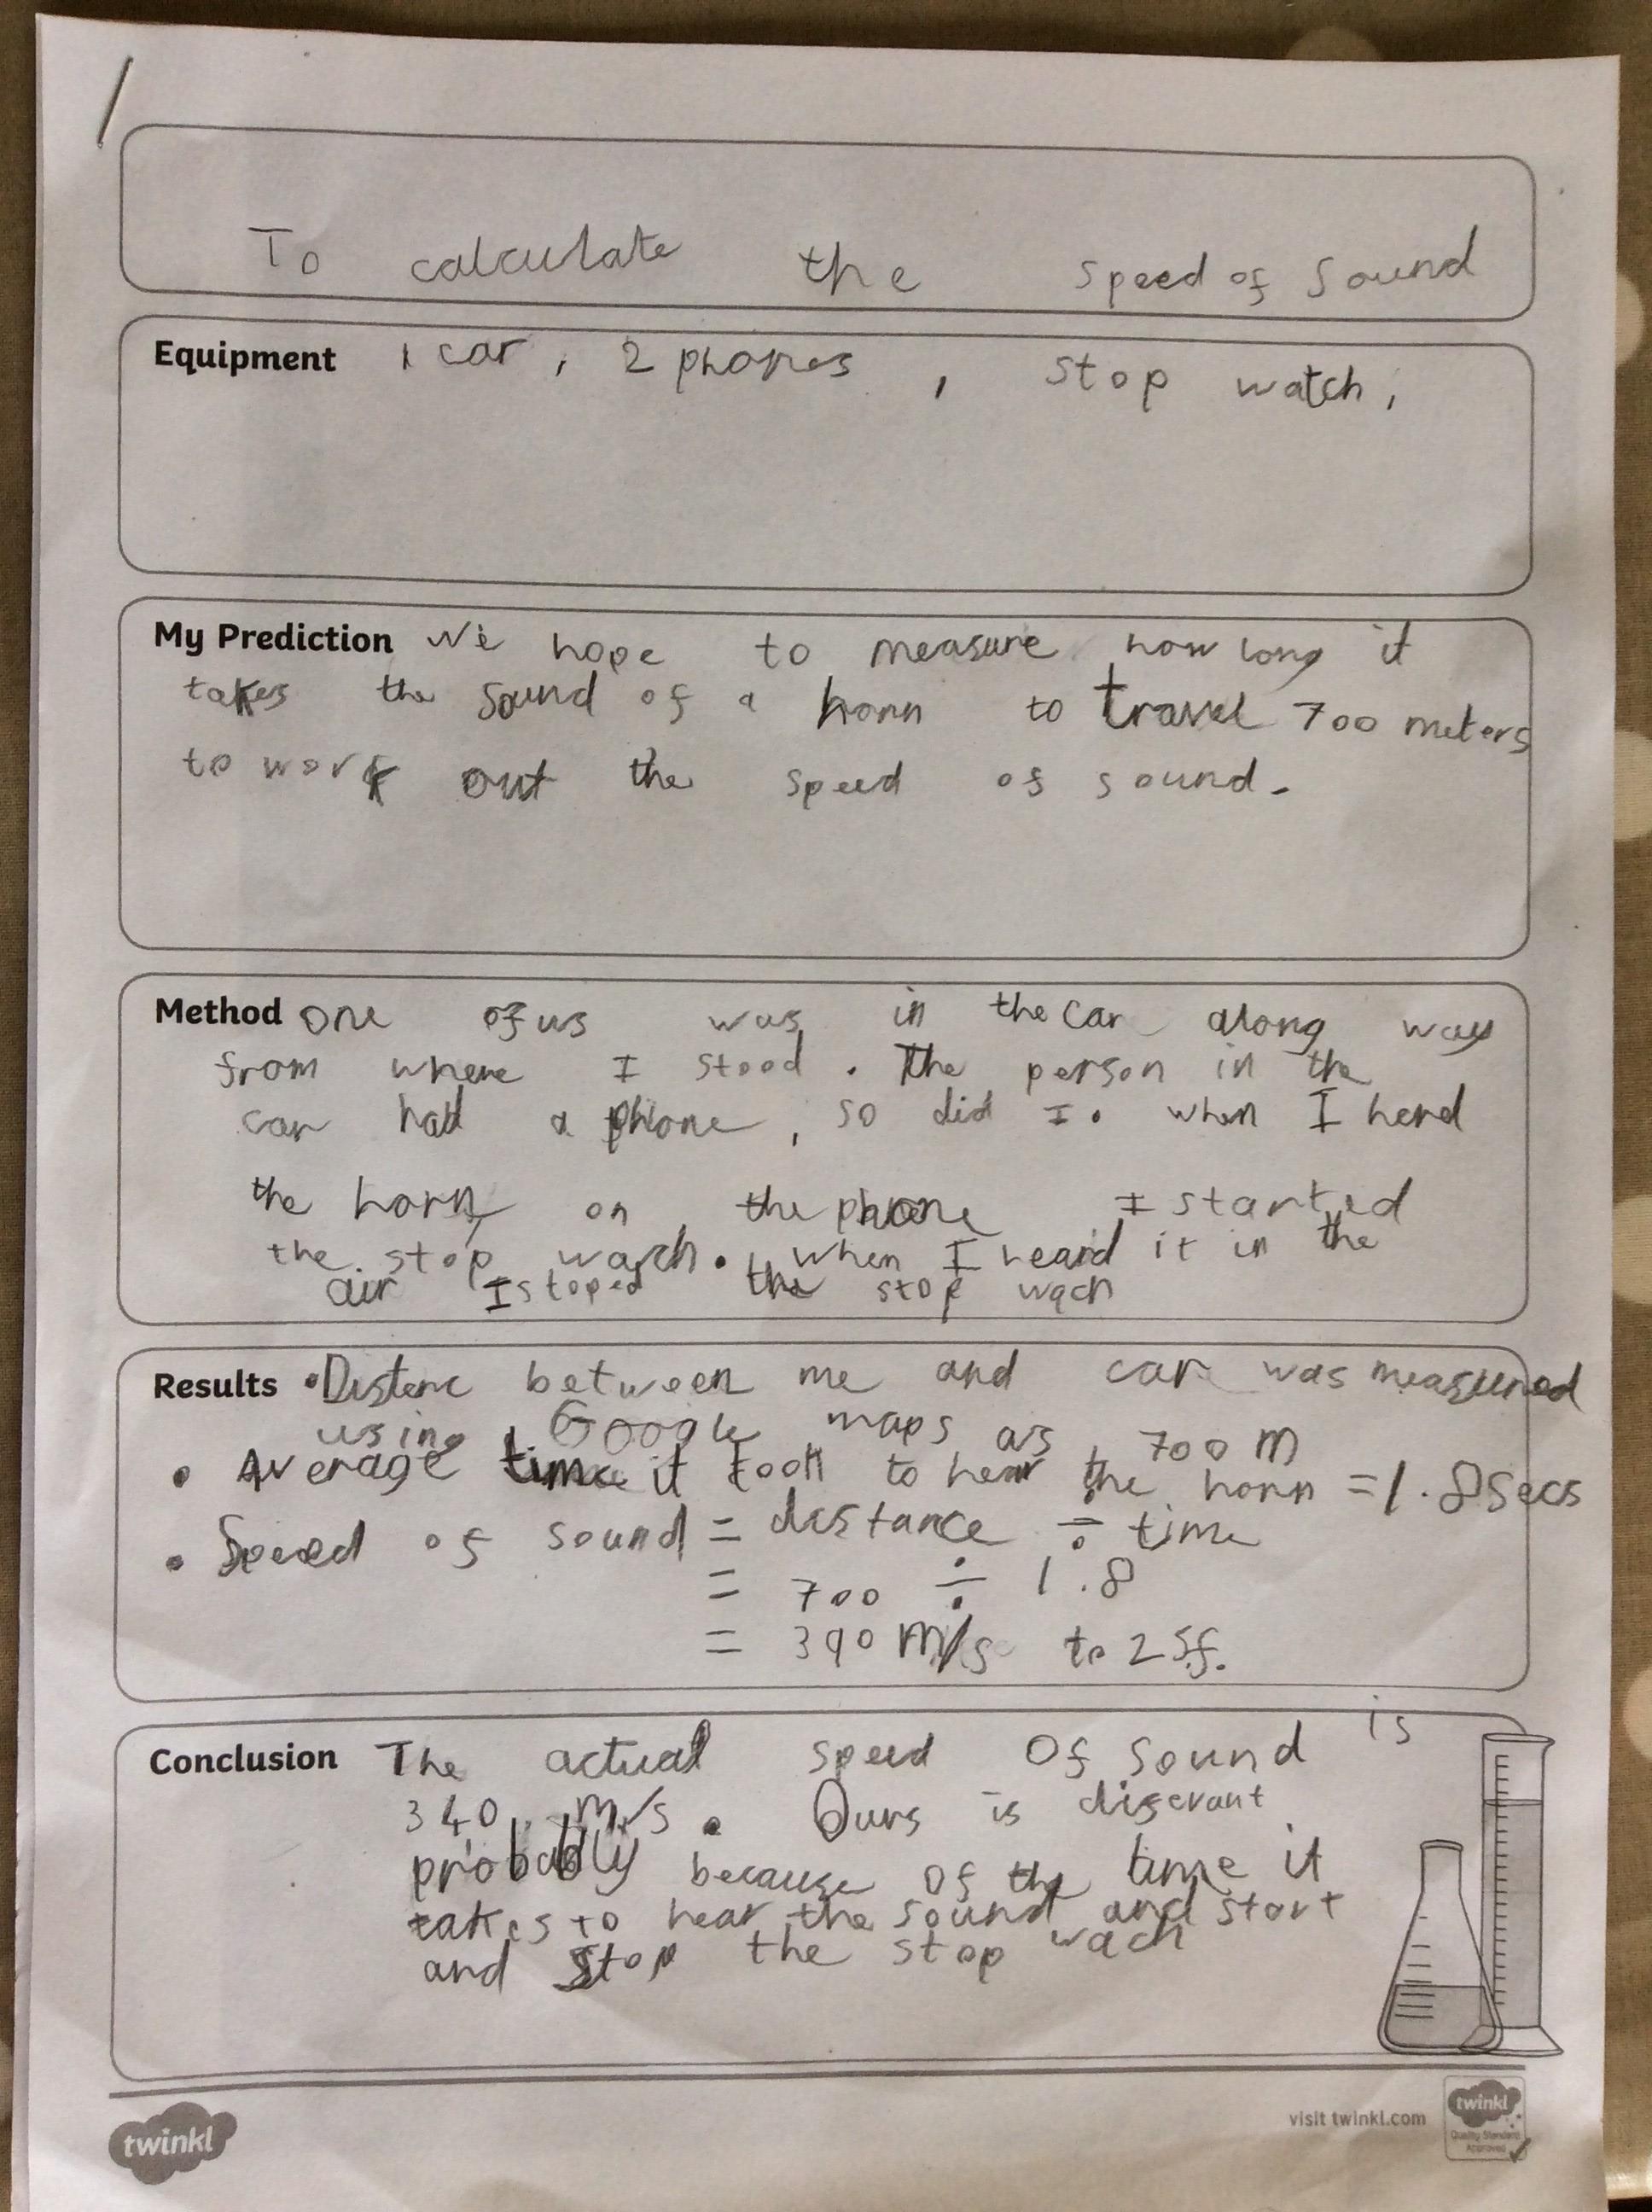 To calculate the speed of sound
Equipment 1 car, 2 phones, stop watch,
My Prediction We hope to measure how long it
takes the sound of a horn to travel 700 meters
to work out the speed of sound.
Method one of us was in the car along way
from where I stood. The person in the
car had a phone, so did I. when I herd
the horn on the phone I started
the stop wach. when I heard it in the
air I stoped the stop wach
Results • Distenc between me and car was measured
using Google maps as 700 m
• Average time it took to hear the horn = 1.8secs
• Speed of sound = distance ÷ time
= 700 ÷ 1.8
= 390 m/s to 2 s.f.
Conclusion The actual speed of sound is
340 m/s. Ours is
probably because of the time it
takes to hear the sound and start
and stop the stop wach
twinkl
visit twinkl.com
twinkl
Quality Standard
Approved